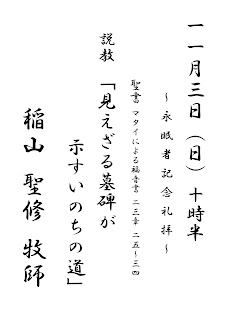 一一月三日（日）十時半
～永眠者記念礼拝～
聖書 マタイによる福音書 二三章 二五～三四
説教「見えざる墓碑が
示すいのちの道」
稲山 聖修 牧師